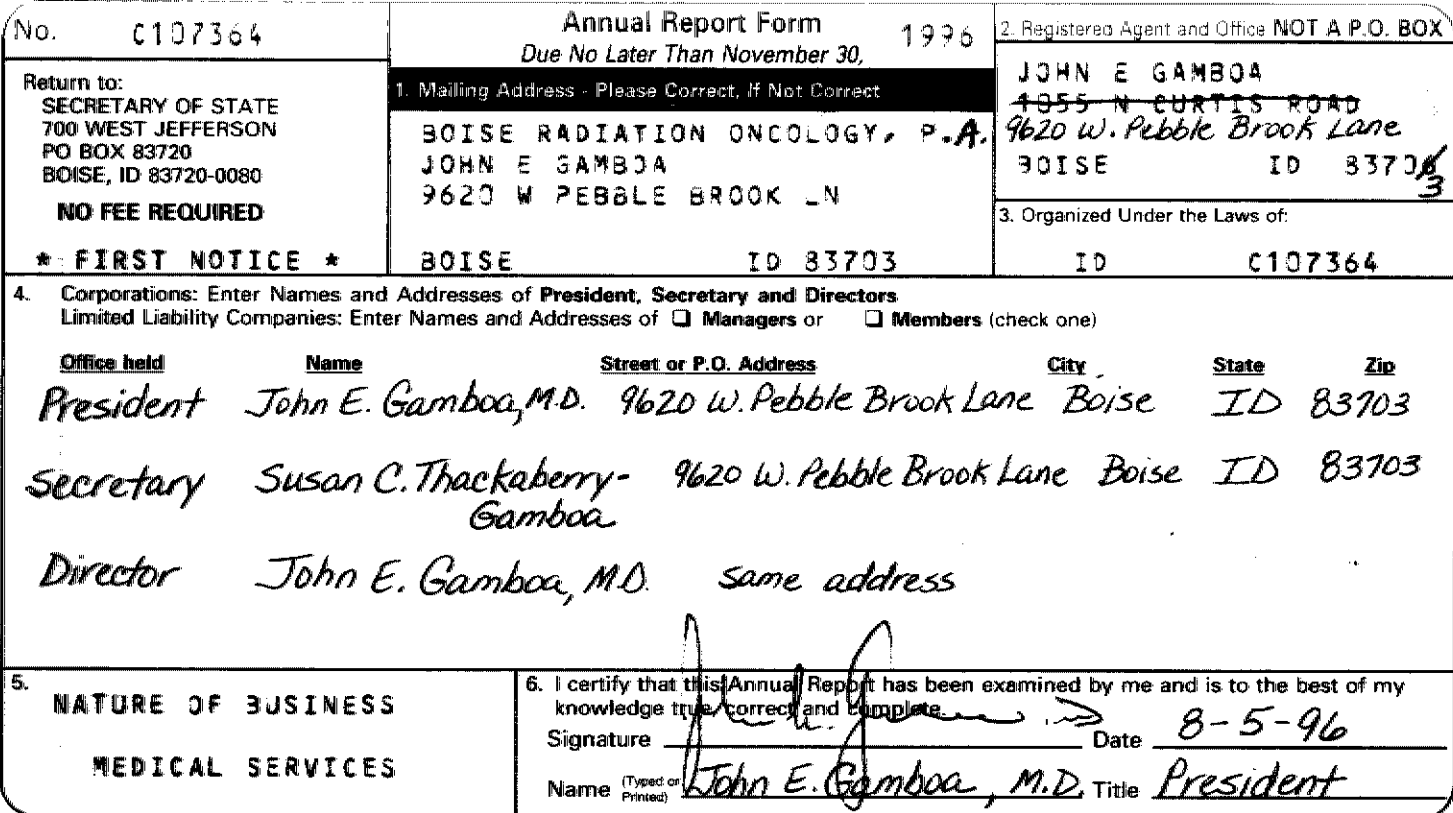 No. C107364
Annual Report Form 1996
Due No Later Than November 30,
Return to:
SECRETARY OF STATE
700 WEST JEFFERSON
PO BOX 83720
BOISE, ID 83720-0080
NO FEE REQUIRED
* FIRST NOTICE *
1. Mailing Address - Please Correct, If Not Correct
BOISE RADIATION ONCOLOGY, P.A.
JOHN E GAMBOA
9620 W PEBBLE BROOK LN
BOISE ID 83703
2. Registered Agent and Office NOT A P.O. BOX
JOHN E GAMBOA
1055 N CURTIS ROAD
9620 W. Pebble Brook Lane
BOISE ID 83706
3
3. Organized Under the Laws of:
ID C107364
4. Corporations: Enter Names and Addresses of President, Secretary and Directors
Limited Liability Companies: Enter Names and Addresses of ❑ Managers or ❑ Members (check one)
Office held Name Street or P.O. Address City State Zip
President John E. Gamboa, M.D. 9620 W. Pebble Brook Lane Boise ID 83703
Secretary Susan C. Thackaberry- 9620 W. Pebble Brook Lane Boise ID 83703
Gamboa
Director John E. Gamboa, M.D. same address
5. NATURE OF BUSINESS
MEDICAL SERVICES
6. I certify that this Annual Report has been examined by me and is to the best of my
knowledge true, correct and complete.
Signature Date 8-5-96
Name (Typed or Printed) John E. Gamboa, M.D. Title President